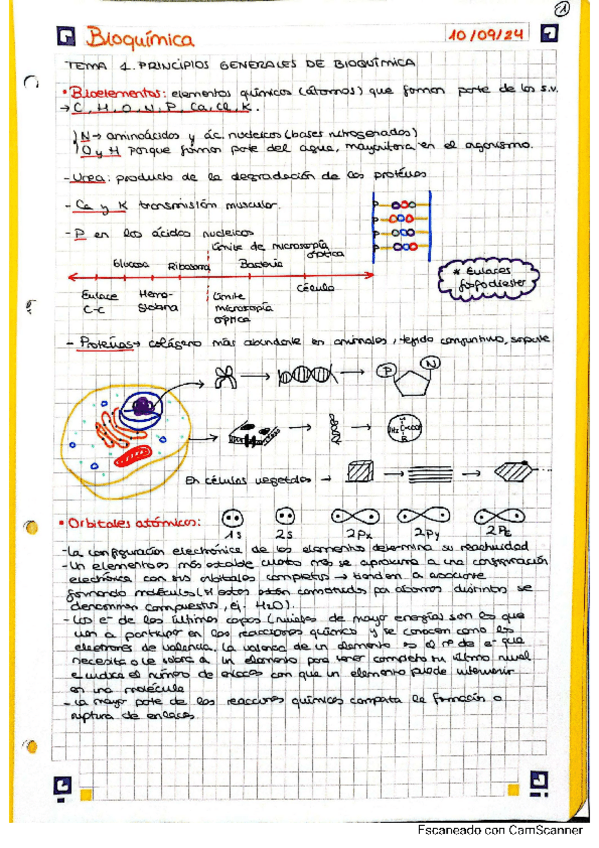 1
Bioquímica
10/09/24
TEMA 1. PRINCIPIOS GENERALES DE BIOQUÍMICA
• Bioelementos: elementos químicos (átomos) que forman parte de los s.v.
→ C, H, O, N, P, Ca, Cl, K.
N → aminoácidos y ác. nucleicos (bases nitrogenadas)
O y H porque forman parte del agua, mayoritaria en el organismo.
- Urea: producto de la degradación de las proteínas
- Ca y K transmisión muscular.
- P en los ácidos nucleicos
límite de microscopía
óptica
Glucosa Ribosoma Bacteria
* Enlaces
fosfodiester
Enlace Hemo- límite célula
C-C globina microscopía
óptica
- Proteínas → colágeno más abundante en animales, tejido conjuntivo, soporte
P N
En células vegetales →
• Orbitales atómicos:
1s 2s 2Px 2Py 2Pz
- La configuración electrónica de los elementos determina su reactividad
- Un elemento es más estable cuanto más se aproxima a una configuración
electrónica con sus orbitales completos → tienden a asociarse
formando moléculas (si estas están constituidas por átomos distintos se
denominan compuestos, ej. H2O).
- Los e- de las últimas capas (niveles de mayor energía) son los que
van a participar en las reacciones químicas y se conocen como los
electrones de valencia. La valencia de un elemento es el nº de e- que
necesita o le sobra a un elemento para tener completo su último nivel
e indica el número de enlaces con que un elemento puede intervenir
en una molécula
- La mayor parte de las reacciones químicas comporta la formación o
ruptura de enlaces.
Escaneado con CamScanner